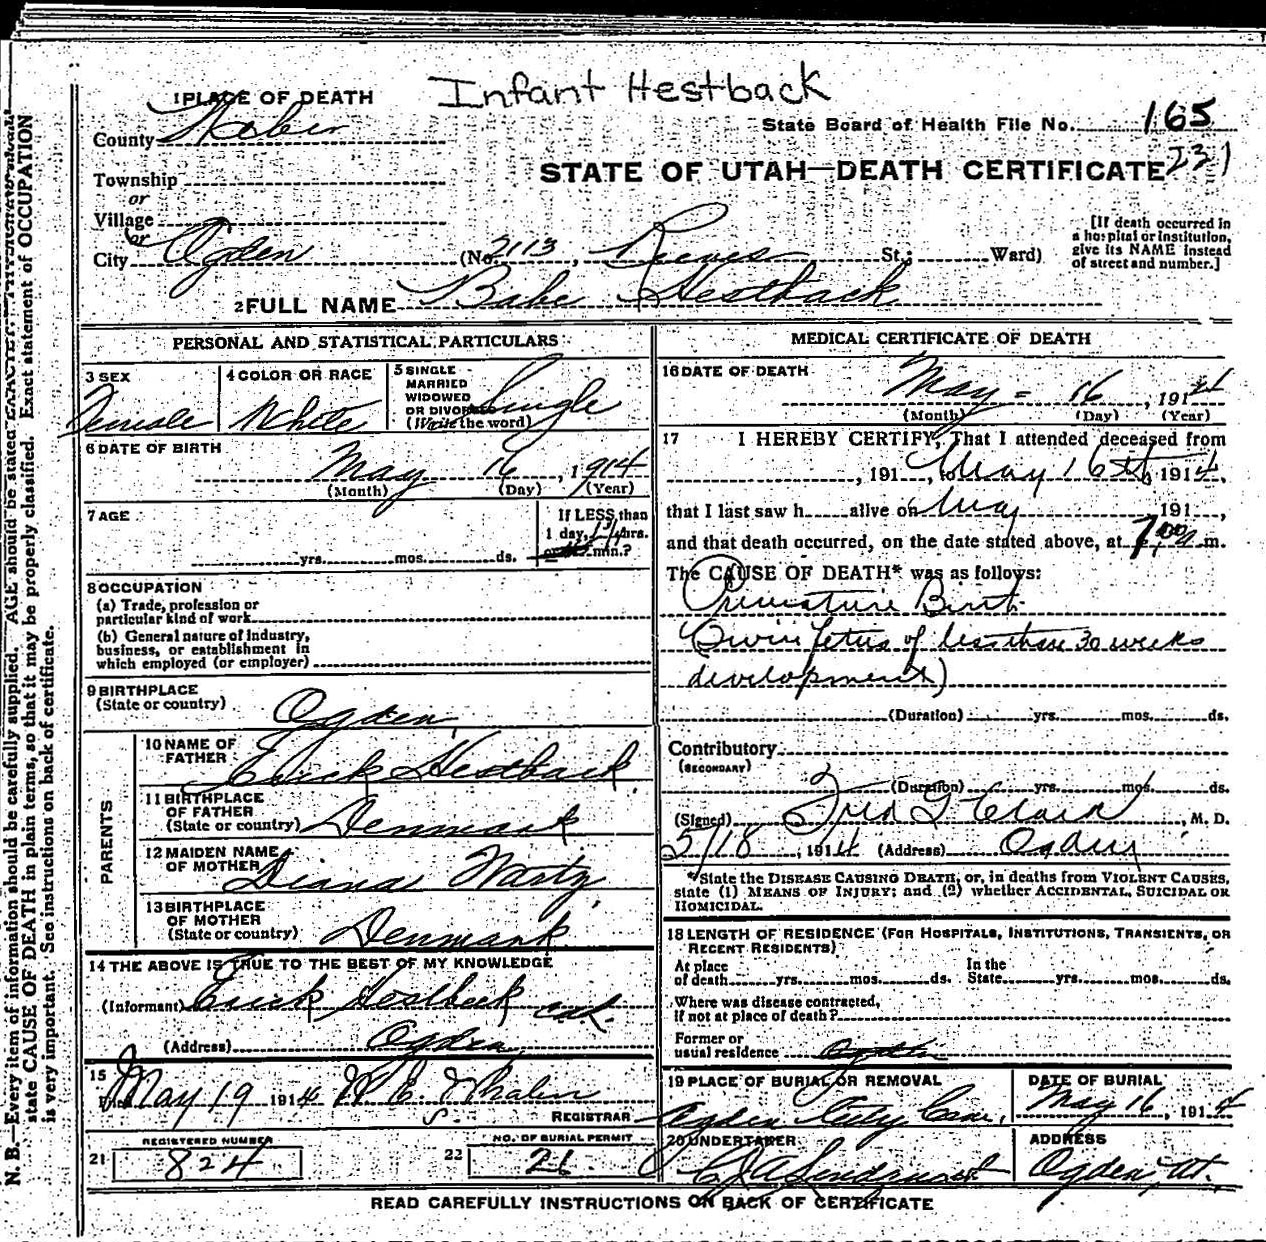 Infant Hestback
1 PLACE OF DEATH
State Board of Health File No. 165
County Weber
231
STATE OF UTAH—DEATH CERTIFICATE
Township
or
Village
or
City Ogden (No. 2113, Reeves St.; Ward)
[If death occurred in
a hospital or institution,
give its NAME instead
of street and number.]
2 FULL NAME Babe Hestback
PERSONAL AND STATISTICAL PARTICULARS
3 SEX
Female
4 COLOR OR RACE
White
5 SINGLE
MARRIED
WIDOWED
OR DIVORCED
(Write the word)
Single
6 DATE OF BIRTH
May 16, 1914
(Month) (Day) (Year)
7 AGE
If LESS than
1 day, hrs.
or min.?
yrs. mos. ds.
8 OCCUPATION
(a) Trade, profession or
particular kind of work
(b) General nature of industry,
business, or establishment in
which employed (or employer)
9 BIRTHPLACE
(State or country)
Ogden
PARENTS
10 NAME OF
FATHER
Erick Hestback
11 BIRTHPLACE
OF FATHER
(State or country) Denmark
12 MAIDEN NAME
OF MOTHER
Diana Wartz
13 BIRTHPLACE
OF MOTHER
(State or country) Denmark
14 THE ABOVE IS TRUE TO THE BEST OF MY KNOWLEDGE
(Informant) Erick Hestback
(Address) Ogden
15
May 19 1914 W E Whalen
S. REGISTRAR
REGISTERED NUMBER
21 824
NO. OF BURIAL PERMIT
22 26
MEDICAL CERTIFICATE OF DEATH
16 DATE OF DEATH
May - 16, 1914
(Month) (Day) (Year)
17 I HEREBY CERTIFY, That I attended deceased from
, 191 , to May 16th, 1914,
that I last saw h alive on May 191 ,
and that death occurred, on the date stated above, at m.
The CAUSE OF DEATH* was as follows:
Premature Birth
(Twin fetus of less than 30 weeks
development)
(Duration) yrs. mos. ds.
Contributory
(SECONDARY)
(Duration) yrs. mos. ds.
(Signed) Fred G Clark, M. D.
5/18, 1914 (Address) Ogden
*State the DISEASE CAUSING DEATH, or, in deaths from VIOLENT CAUSES,
state (1) MEANS OF INJURY; and (2) whether ACCIDENTAL, SUICIDAL OR
HOMICIDAL.
18 LENGTH OF RESIDENCE (FOR HOSPITALS, INSTITUTIONS, TRANSIENTS, OR
RECENT RESIDENTS)
At place
of death yrs. mos. ds.
In the
State yrs. mos. ds.
Where was disease contracted,
if not at place of death?
Former or
usual residence Ogden
19 PLACE OF BURIAL OR REMOVAL
Ogden City Cem.
DATE OF BURIAL
May 16, 1914
20 UNDERTAKER
ADDRESS
Ogden, Ut.
READ CAREFULLY INSTRUCTIONS ON BACK OF CERTIFICATE
N. B.—Every item of information should be carefully supplied. AGE should be stated EXACTLY.
state CAUSE OF DEATH in plain terms, so that it may be properly classified. Exact statement of OCCUPATION
is very important. See instructions on back of certificate.